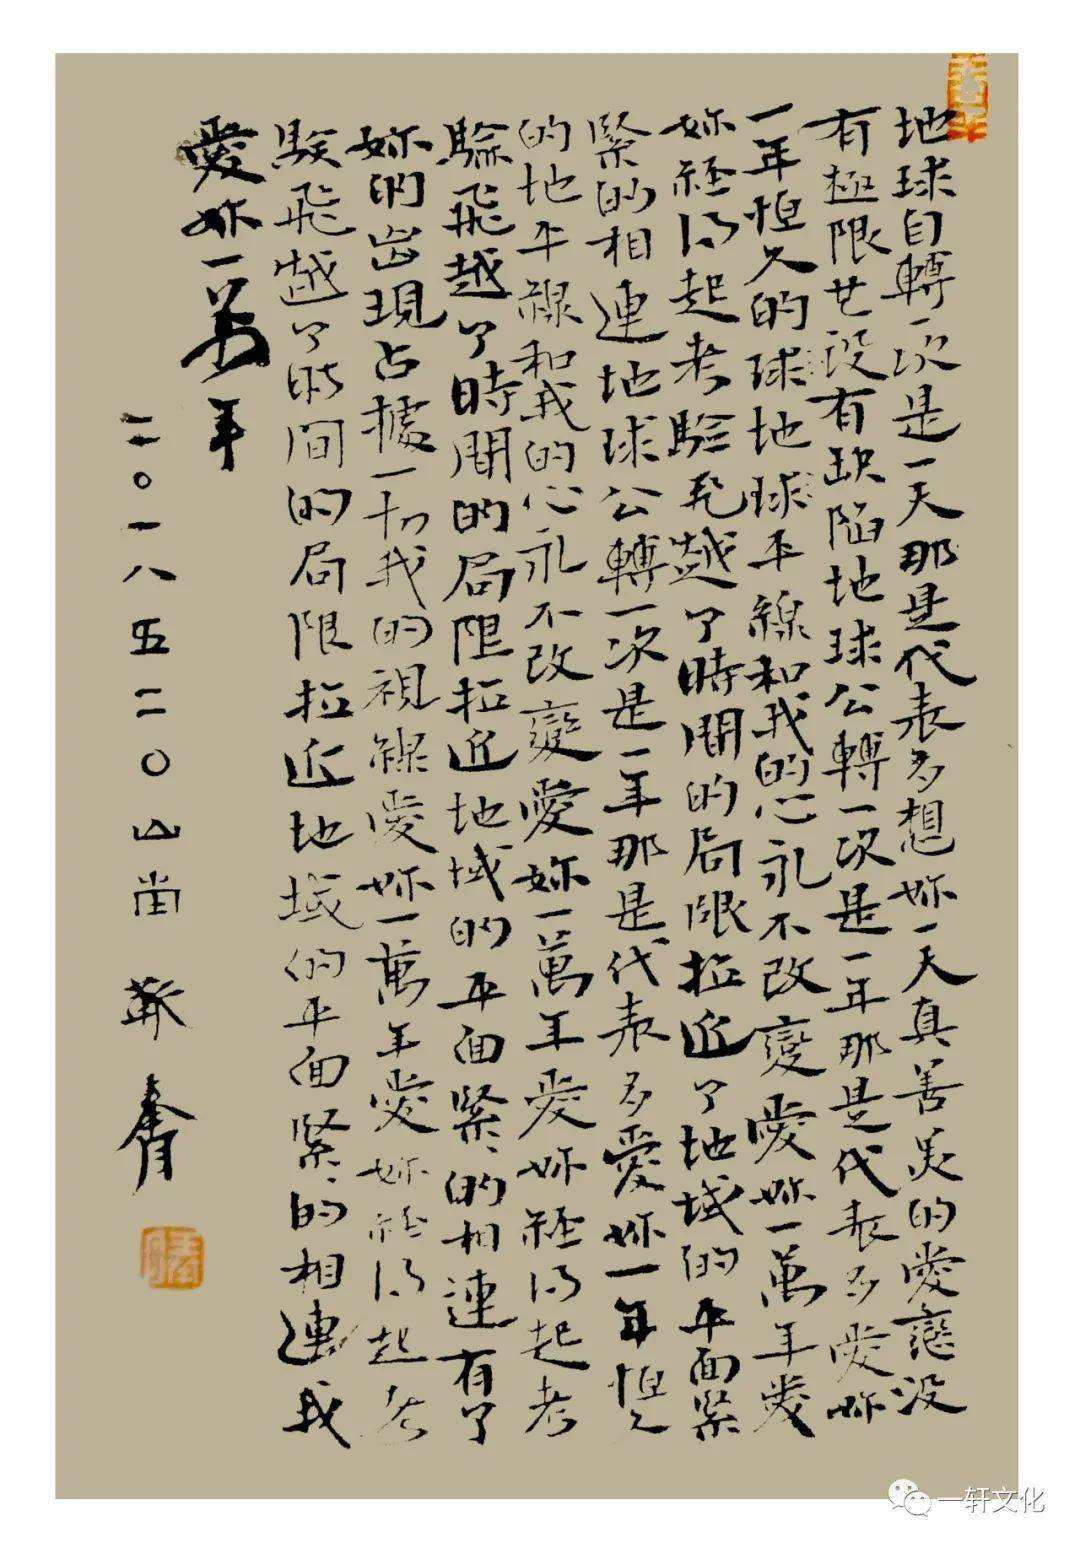 地球自轉一次是一天那是代表多想妳一天真善美的愛戀没
有極限也没有缺陷地球公轉一次是一年那是代表多愛妳
一年恒久的球地球平線和我的心永不改變愛妳一萬年愛
妳经得起考驗飛越了時間的局限拉近了地域的平面緊
緊的相連地球公轉一次是一年那是代表多愛妳一年恒久
的地平線和我的心永不改變愛妳一萬年愛妳经得起考
驗飛越了時間的局限拉近地域的平面緊緊的相連有了
妳的出現占據一切我的視線愛妳一萬年愛妳经得起考
驗飛越了时间的局限拉近地域的平面緊緊的相連我
愛妳一萬年
二〇一八五二〇山
一轩文化